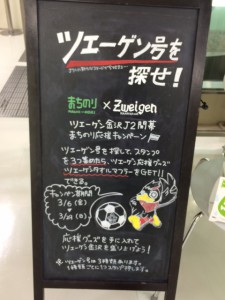 ツエーゲン号を
探せ!
まちのり × Zweigen
ツエーゲン金沢J2開幕
まちのり応援キャンペーン
ツエーゲン号を探して、スタンプ
を3つ集めたら、ツエーゲン応援グッズ
ツエーゲンタオルマフラーをGET!!
できる
キャンペーン期間
3/6(金)
3/29(日)
応援グッズを手に入れて
ツエーゲン金沢を盛り上げよう!
※ツエーゲン号は3種類あります。